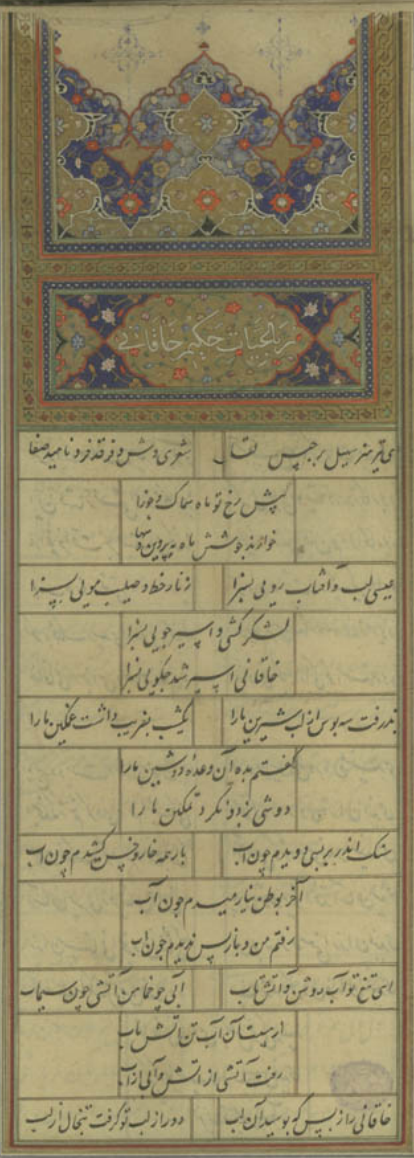 رباعیات حکیم خاقانی
ای تیر هنر سهیل برجیس لقا شعری وش و فرقد فر و ناهید صفا
پیش رخ تو ماه سماک و جوزا
خوارند چو شش ماه پروین و سها
عیسی لب و آفتاب رویی پسرا زنار خط و صلیب مویی پسرا
لشکر کشی و اسیر جویی پسرا
خاقانی اسیر شد چکویی پسرا
پذرفت سه بوس از لب شیرین ما را یکشب بفریب داشت غمکین ما را
کفتم بده آن وعده دوشین ما را
دوشی بزد و نکرد تمکین ما را
سنک اندر بر بسی دویدم چون آب بار همه خار و خس کشیدم چون آب
آخر بوطن نیارمیدم چون آب
رفتم من و باز پس ندیدم چون آب
ای تیغ تو آب روشن و آتش ناب آبی چو خماهن آتشی چون سیماب
از هیبت آن آب تن آتش تاب
رفت آتشی از آتش و آبی از آب
خاقانی را ز بس که بوسید آن لب دور از لب تو کرفت تبخال از لب